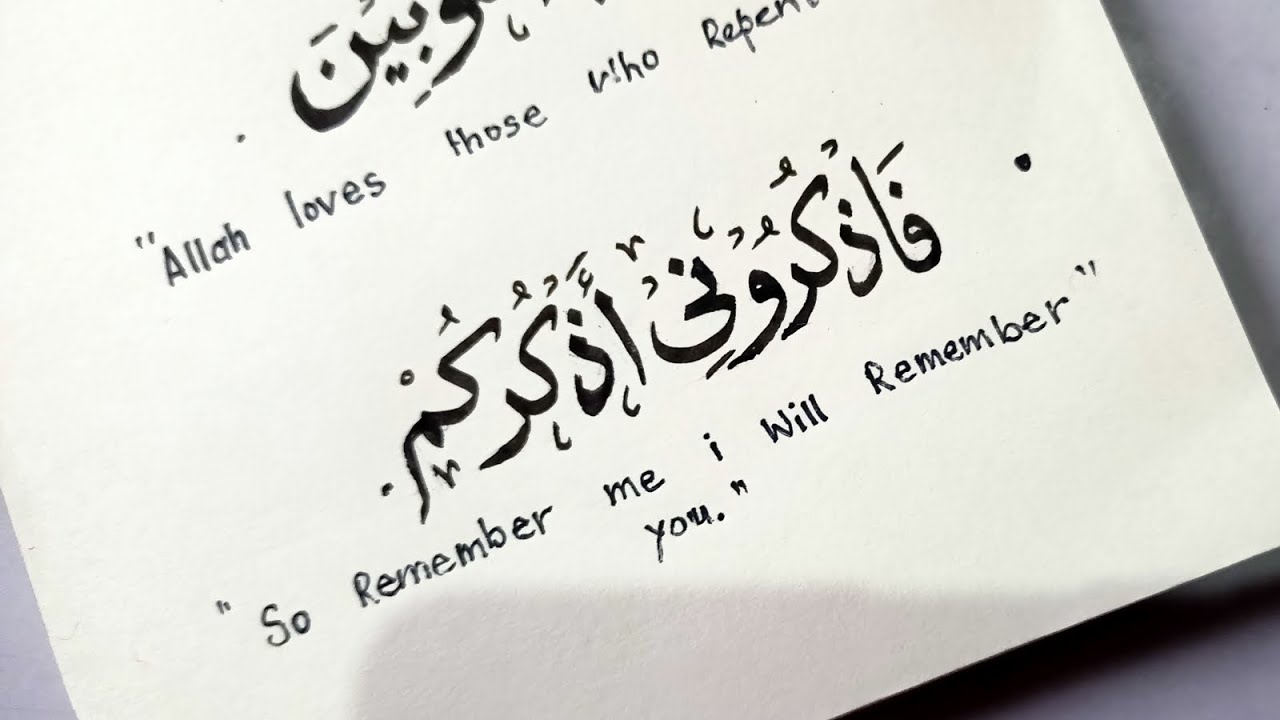 "Allah loves those who Repent
فَاذْكُرُوْنِيْ أَذْكُرُكُمْ.
"So Remember me i Will Remember"
you."